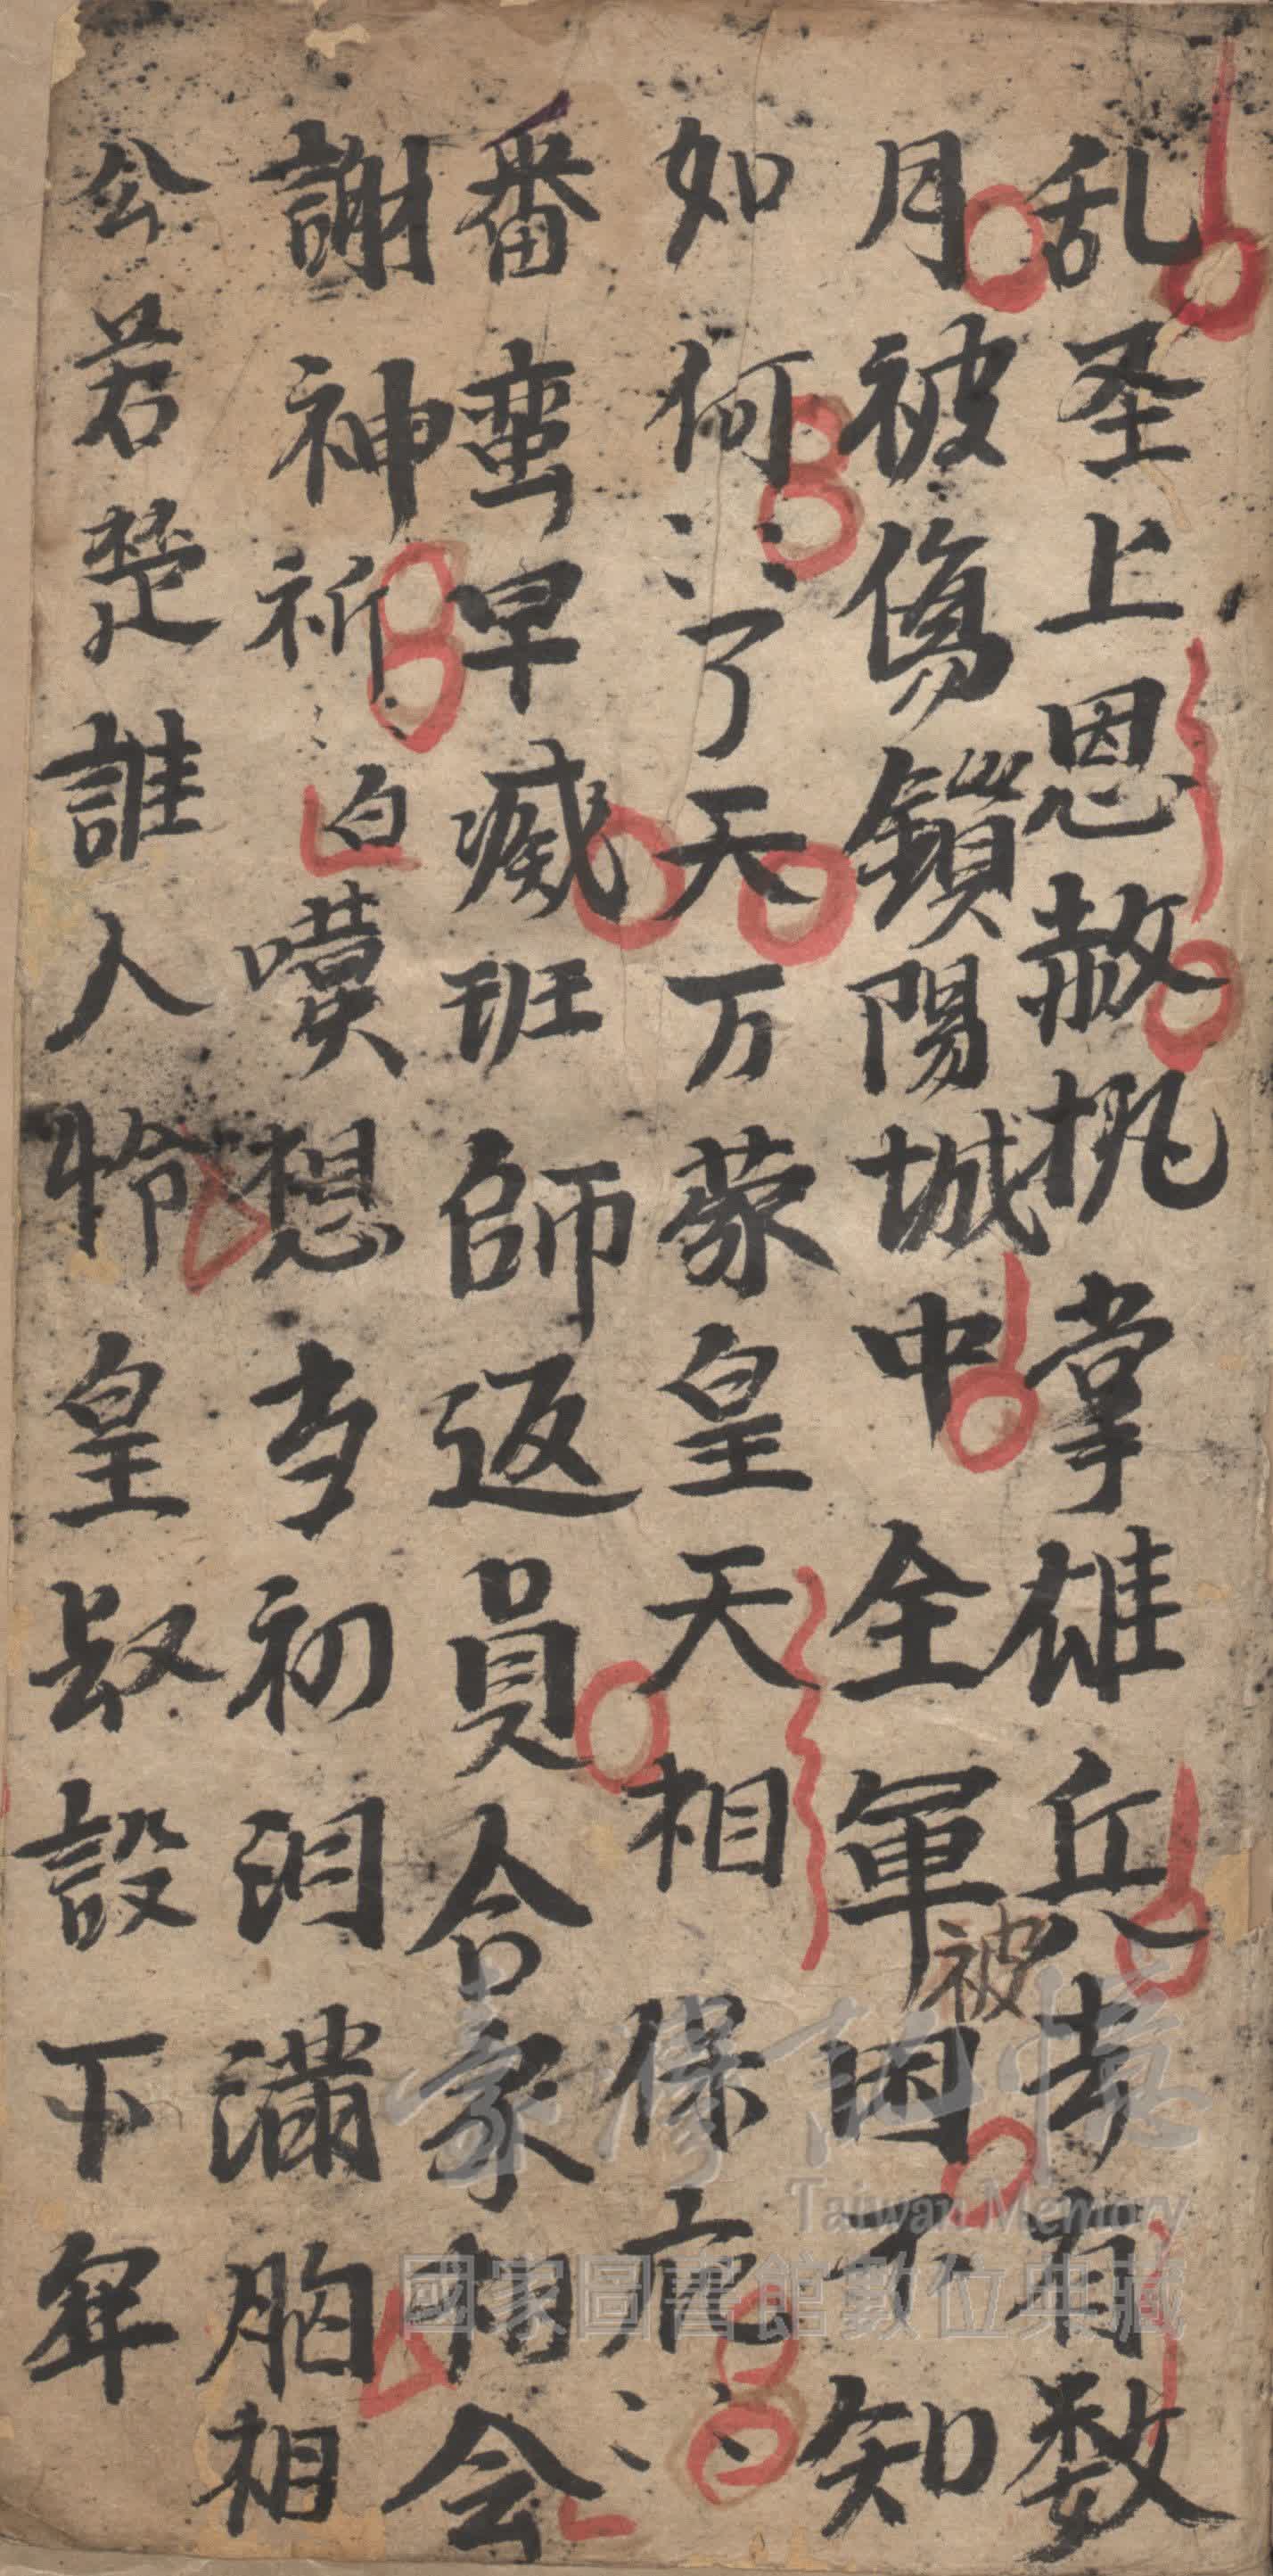 乱圣上恩赦挑掌雄兵考有数
月被傷鎖陽城中全軍被困不知
如何〻了天万蒙皇天相保庇〻
番蛮早滅班師返員合家相会
謝神祈〻白嘆想当初泪满胸相
公若楚誰人怜皇叔設下牢
Taiwan Memory
國家圖書館數位典藏